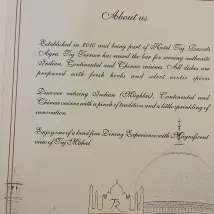 About us
Established in 2010 and being part of Hotel Taj Resorts
Agra. Taj Terrace has raised the bar for serving authentic
Indian, Continental and Chinese cuisines. All dishes are
prepared with fresh herbs and select exotic spices
Discover enticing Indian (Mughlai), Continental and
Chinese cuisine with a pinch of tradition and a little sprinkling of
innovation.
Enjoy one of a kind fine Dining Experience with Magnificent
view of Taj Mahal